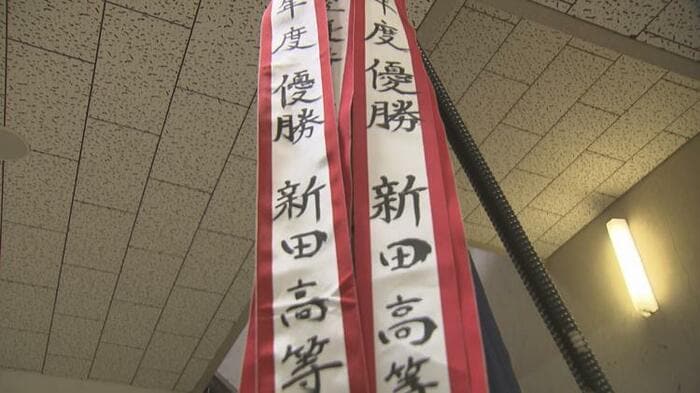 年度 優勝 新田高等
年度 優勝 新田高等